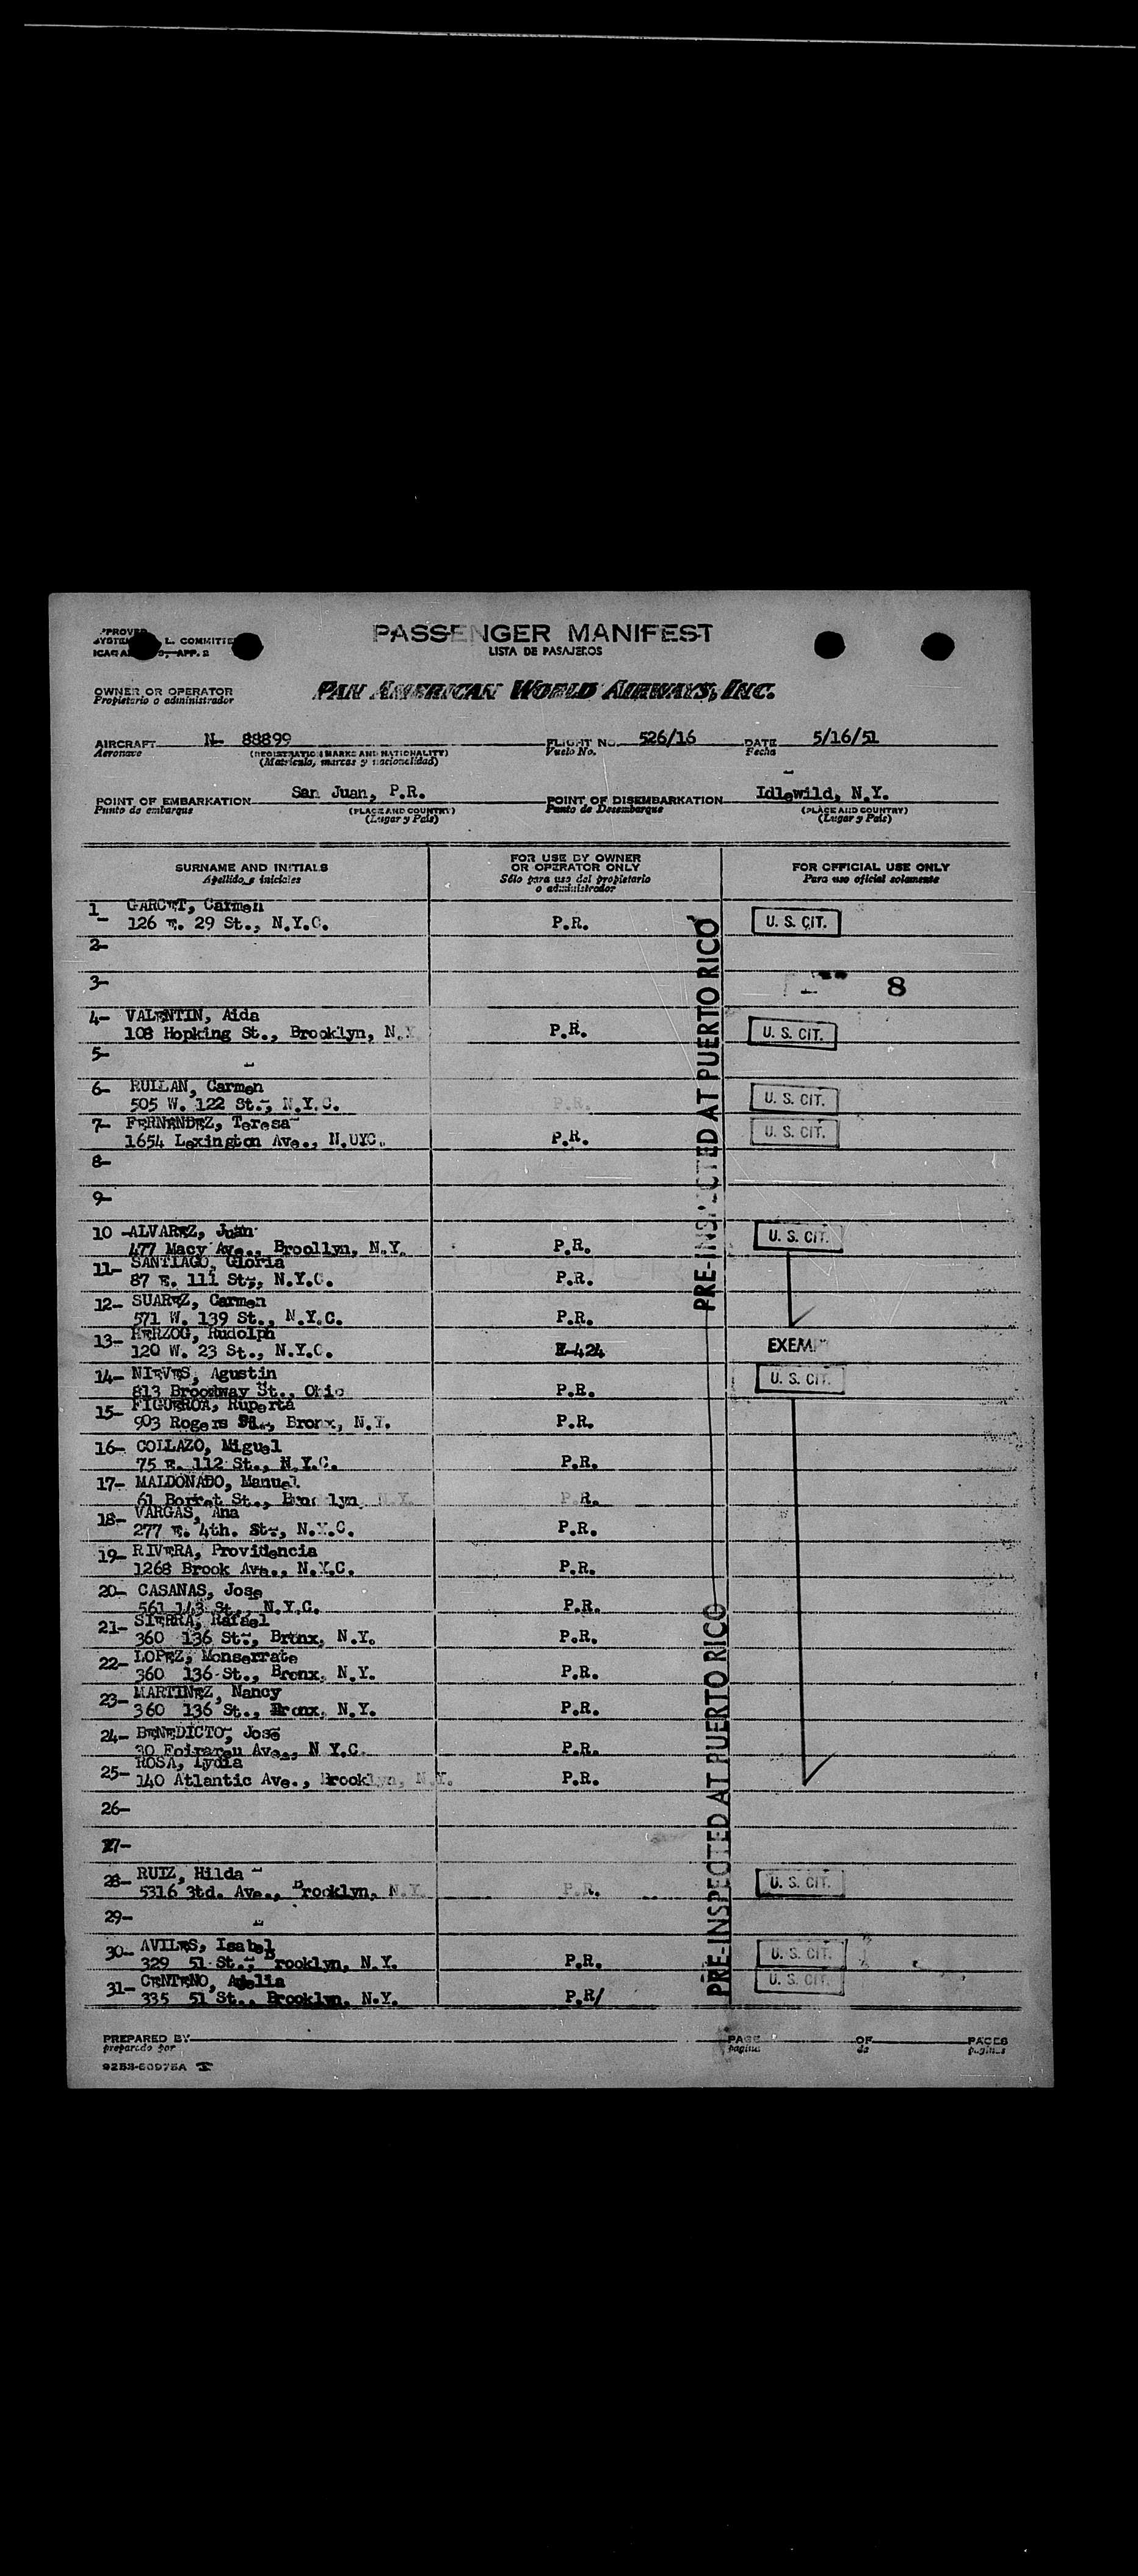 PASSENGER MANIFEST
LISTA DE PASAJEROS
L. COMMITTE
APP. 2
OWNER OR OPERATOR
Propietario o administrador
PAN AMERICAN WORLD AIRWAYS, INC.
AIRCRAFT N- 88899 FLIGHT NO. 526/16 DATE 5/16/51
Aeronave (REGISTRATION MARKS AND NATIONALITY) Vuelo No. Fecha
(Matricula, marcas y nacionalidad)
POINT OF EMBARKATION San Juan, P.R. POINT OF DISEMBARKATION Idlewild, N.Y.
Punto de embarque (PLACE AND COUNTRY) Punto de Desembarque (PLACE AND COUNTRY)
(Lugar y Pais) (Lugar y Pais)
SURNAME AND INITIALS FOR USE BY OWNER OR OPERATOR ONLY FOR OFFICIAL USE ONLY
Apellido e iniciales Sólo para uso del propietario o administrador Para uso oficial solamente
1 GARCET, Carmen
126 E. 29 St., N.Y.C. P.R. U. S. CIT.
2-
3- 8
4- VALENTIN, Aida
108 Hopking St., Brooklyn, N.Y P.R. U. S. CIT.
5-
6- RUILAN, Carmen
505 W. 122 St., N.Y.C. P.R. U. S. CIT.
7- FERNANDEZ, Teresa
1654 Lexington Ave., N.UYC. P.R. U. S. CIT.
8-
9-
10 -ALVAREZ, Juan
477 Macy Ave., Broollyn, N.Y. P.R. U. S. CIT.
11- SANTIAGO, Gloria
87 E. 111 St., N.Y.C. P.R.
12- SUAREZ, Carmen
571 W. 139 St., N.Y.C. P.R.
13- HERZOG, Rudolph
120 W. 23 St., N.Y.C. E-424 EXEMP
14- NIEVES, Agustin
813 Broodway St., Ohio P.R. U. S. CIT.
15- FIGUEROA, Ruperta
903 Rogers St., Bronx, N.Y. P.R.
16- COLLAZO, Miguel
75 E. 112 St., N.Y.C. P.R.
17- MALDONADO, Manuel
61 Borret St., Brooklyn N.Y. P.R.
18- VARGAS, Ana
277 E. 4th. St., N.Y.C. P.R.
19- RIVERA, Providencia
1268 Brook Ave., N.Y.C. P.R.
20- CASANAS, Jose
561 143 St., N.Y.C. P.R.
21- SIERRA, Rafael
360 136 St., Bronx, N.Y. P.R.
22- LOPEZ, Monserrate
360 136 St., Bronx, N.Y. P.R.
23- MARTINEZ, Nancy
360 136 St., Bronx, N.Y. P.R.
24- BENEDICTO, José
30 Ave., N Y.C. P.R.
25- ROSA, Lydia
140 Atlantic Ave., Brooklyn, N.Y. P.R.
26-
27-
28- RUIZ, Hilda
5316 3td. Ave., Brooklyn, N.Y. P.R. U. S. CIT.
29-
30- AVILES, Isabel
329 51 St., Brooklyn, N.Y. P.R. U. S. CIT.
31- CENTENO, Adelia
335 51 St., Brooklyn, N.Y. P.R/ U. S. CIT.
PRE-INSPECTED AT PUERTO RICO
PRE-INSPECTED AT PUERTO RICO
PREPARED BY PAGE OF PAGES
preparado por pagina de paginas